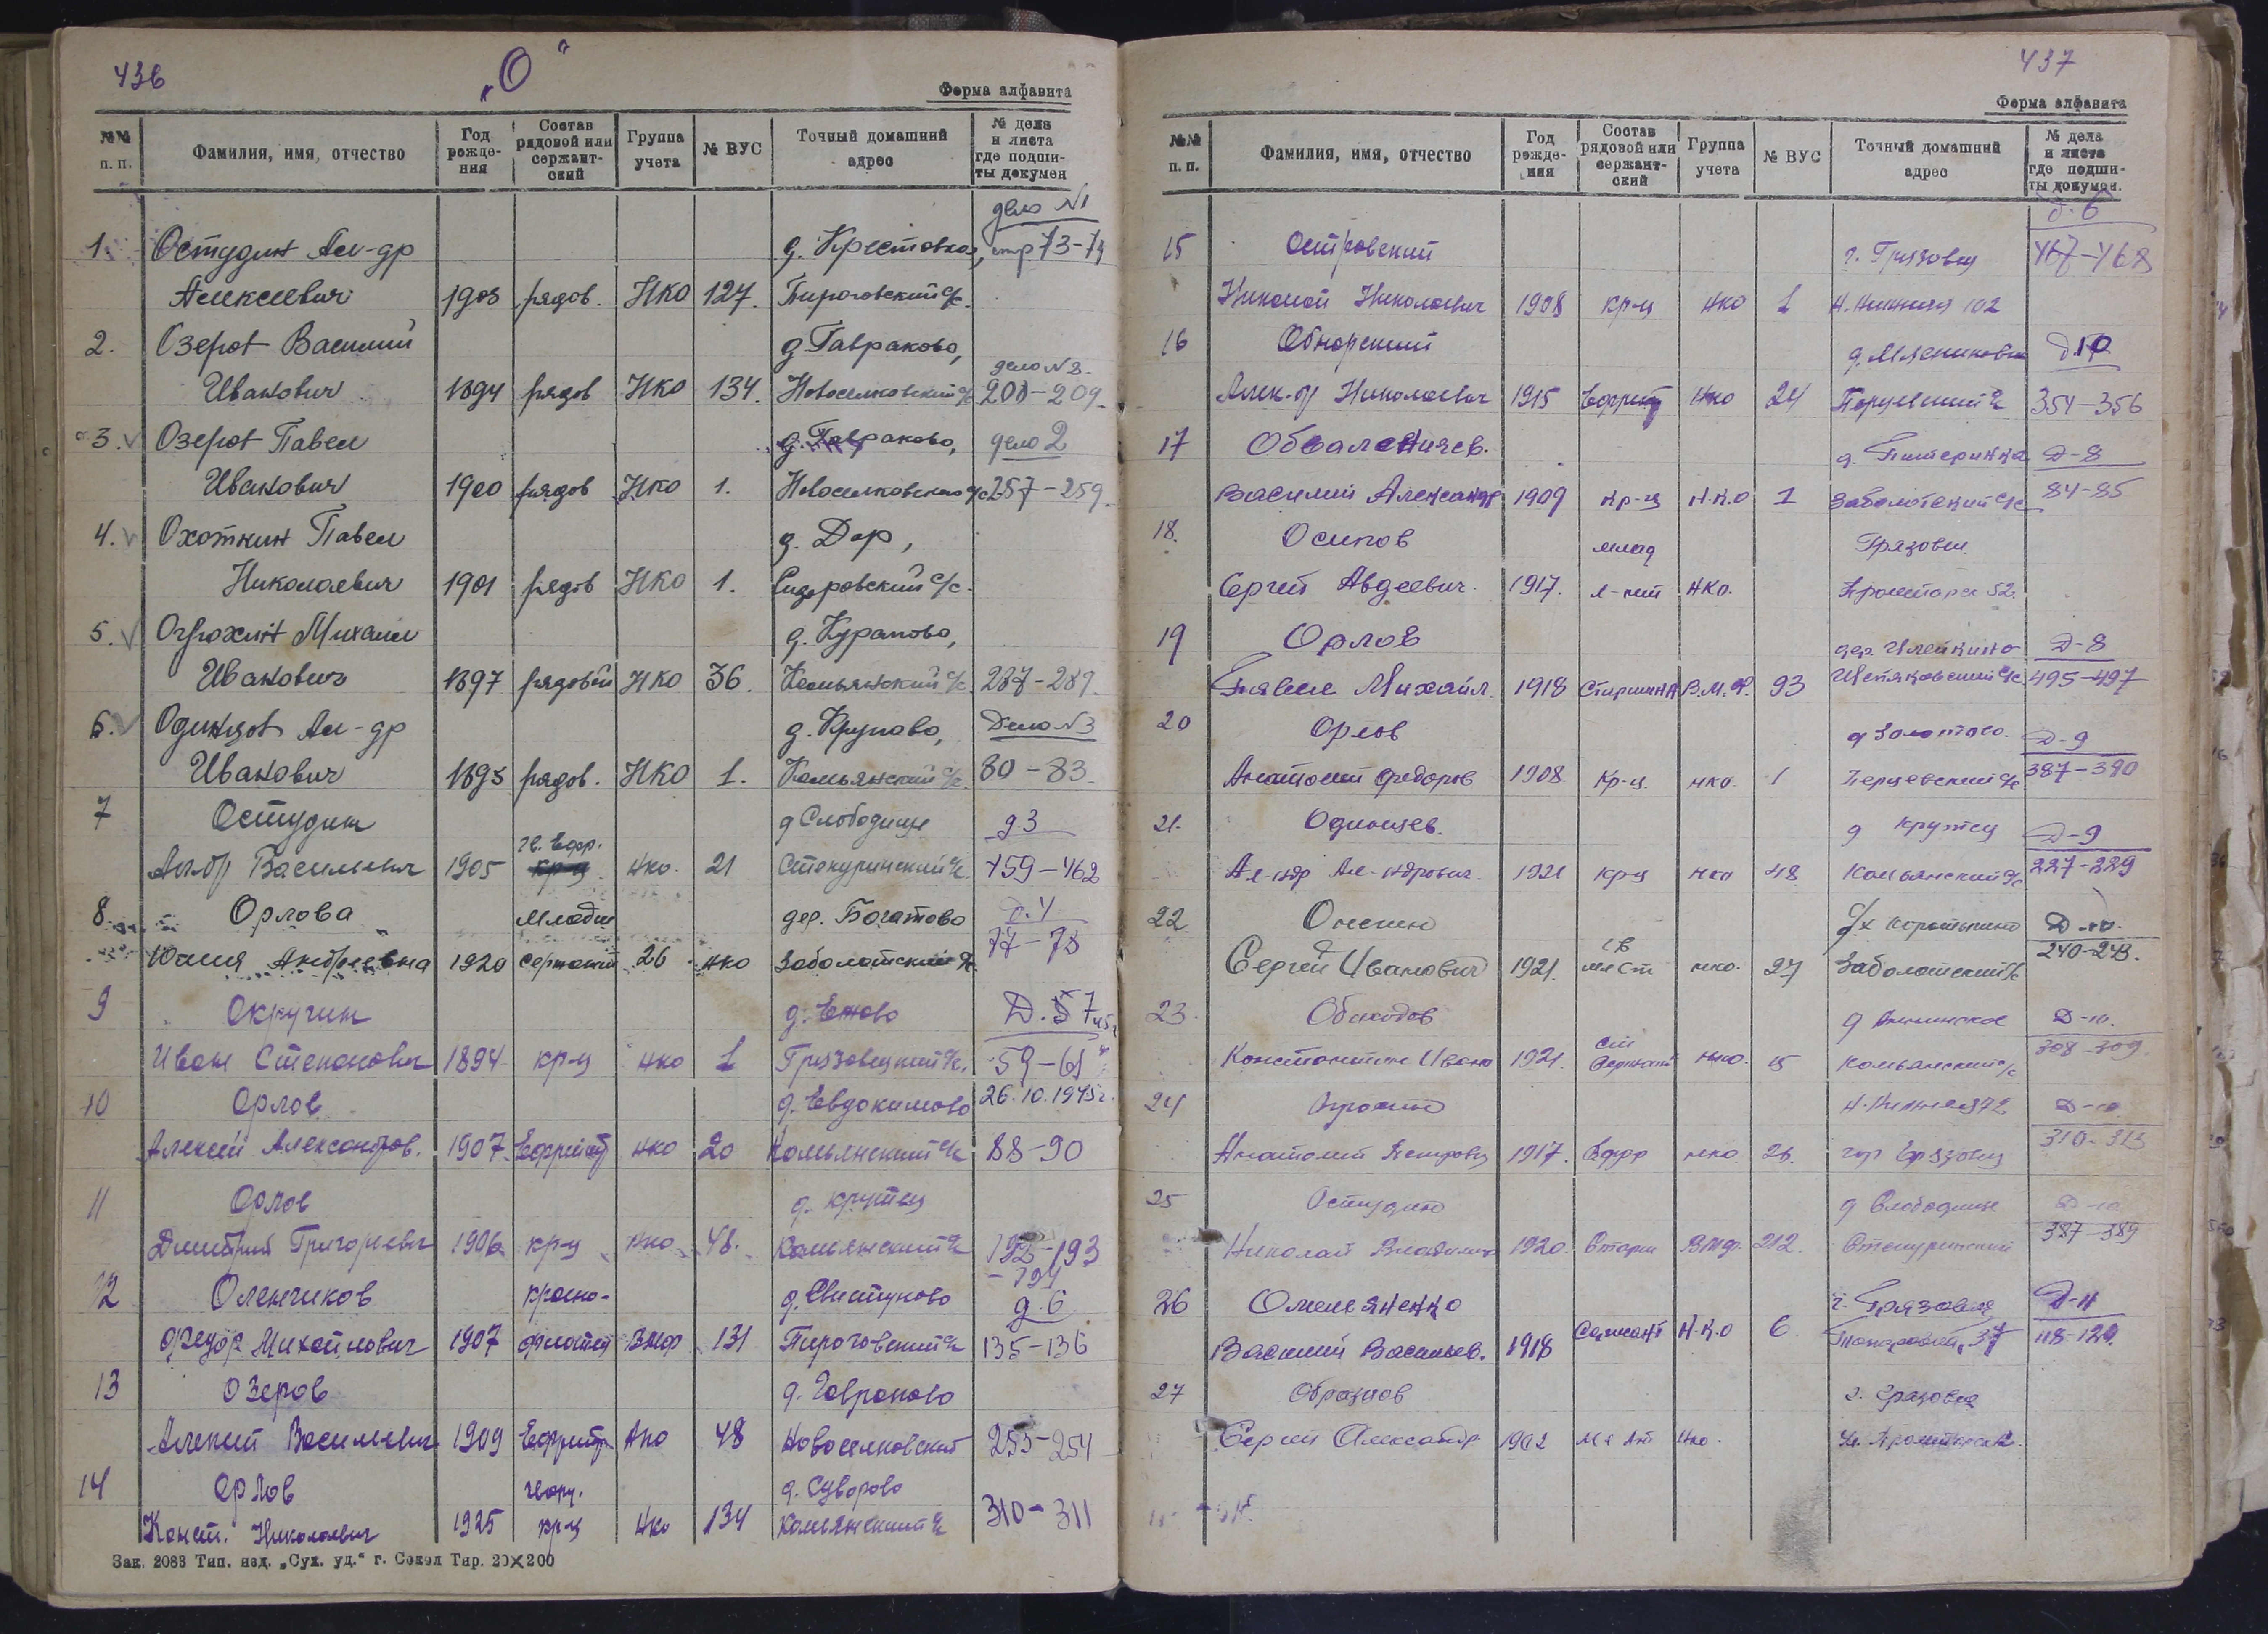 436
„О“
Форма алфавита
№№ п. п. Фамилия, имя, отчество Год рожде- ния Состав рядовой или сержант- ский Группа учета № ВУС Точный домашний адрес № дела и листа где подши- ты докумен
дело №1
1. Остудин Ал-др д. Крестовка, стр 73-74
Алексеевич 1903 рядов. НКО 127. Пироговский с/с.
2. Озеров Василий д. Гавраково, дело №2.
Иванович 1894 рядов НКО 134. Новоселковский с/с 200-209.
3. Озеров Павел д. Гавраково, дело 2
Иванович 1900 рядов НКО 1. Новоселковского с/с 257-259.
4. Охоткин Павел д. Дор,
Николаевич 1901 рядов НКО 1. Сидоровский с/с.
5. Огрохин Михаил д. Курапово,
Иванович 1897 рядовой НКО 36. Комьянский с/с 287-289.
6. Одинцов Ал-др д. Крупово, Дело №3
Иванович 1895 рядов. НКО 1. Комьянский с/с. 80-83.
7 Остудин д Слободище д3
гв. Ефр.
Ал-др Васильевич 1905 кр-ц нко. 21 Стекуринский с/с. 459-462
8. Орлова Младш дер. Богатово д.4
Юлия Андреевна 1920 сержант 26 нко Заболотский с/с 77-78
9 Окручин д. Ежово Д. 5 7
Иван Степанович 1894 кр-ц нко 1 Грязовецкий с/с. 59-61
10 Орлов д. Евдокимово 26.10.1945г.
Алексей Александров. 1907 Ефрейт нко 20 Комьянский с/с 88-90
11 Орлов д. Крутец
Дмитрий Григорьевич 1906 кр-ц нко 48. Комьянский с/с 192-193
-194
12 Оленчиков красно- д. Свистуново д.6
Федор Михайлович 1907 флотец ВМФ 131 Пироговский с/с 135-136
13 Озеров д. Гавраково
Алексей Васильевич 1909 Ефрейтр Нко 48 Новоселковский 253-254
14 Орлов гвард. д. Суворово
Конст. Николаевич 1925 кр-ц Нко 134 Комьянский с/с 310-311
Зак. 2083 Тип. изд. „Сух. уд.“ г. Сокол Тир. 20×200
437
Форма алфавита
№№ п. п. Фамилия, имя, отчество Год рожде- ния Состав рядовой или сержант- ский Группа учета № ВУС Точный домашний адрес № дела и листа где подши- ты докумен.
д. 6
15 Островский г. Грязовец 467-468
Николай Николаевич 1908 кр-ц нко 1 102
16 Обнорский д. Д.10
Алек-др Николаевич 1915 Ефрейт Нко 24 354-356
17 д. Питеринка Д-8
Василий Александр 1909 кр-ц Н.К.О 1 Заболотский с/с 84-85
18. Осипов млад Грязовец
Сергей Авдеевич. 1917. л-нт НКО. Пролетарс 52.
19 Орлов дер. Илейкино Д-8
Павел Михайл. 1918 Старшина В.М.Ф. 93 495-497
20 Орлов д Золотово. Д-9
Анатолий Федоров 1908 Кр-ц. нко 1 Перцевский с/с 387-390
21. Одинцев. д Крутец Д-9
Ал-ндр Ал-ндрович. 1921 кр-ц нко 48 Комьянский с/с 227-229
22. Онегин Д-10.
Сергей Иванович 1921. нко. 27 Заболотский с/с 240-243.
23. Обиходов д Д-10.
Константин Ивано 1921. ст Сержант нко. 15 Комьянский с/с 308-309
24 Д-10
Анатолий Петрович 1917. Ефр нко 26. гор Грязовец 310-313
25 Остудин д Слободище Д-10
Николай Владимир 1920. Старш ВМФ. 212. Стекуринский 387-389
26 Омельяненко г. Грязовец Д-11
Василий Васильев. 1918 Сержант Н.К.О 6 37 118-120.
27 Образцов г. Грязовец
Сергей Александр 1902 Нко. ул. Пролетарск.